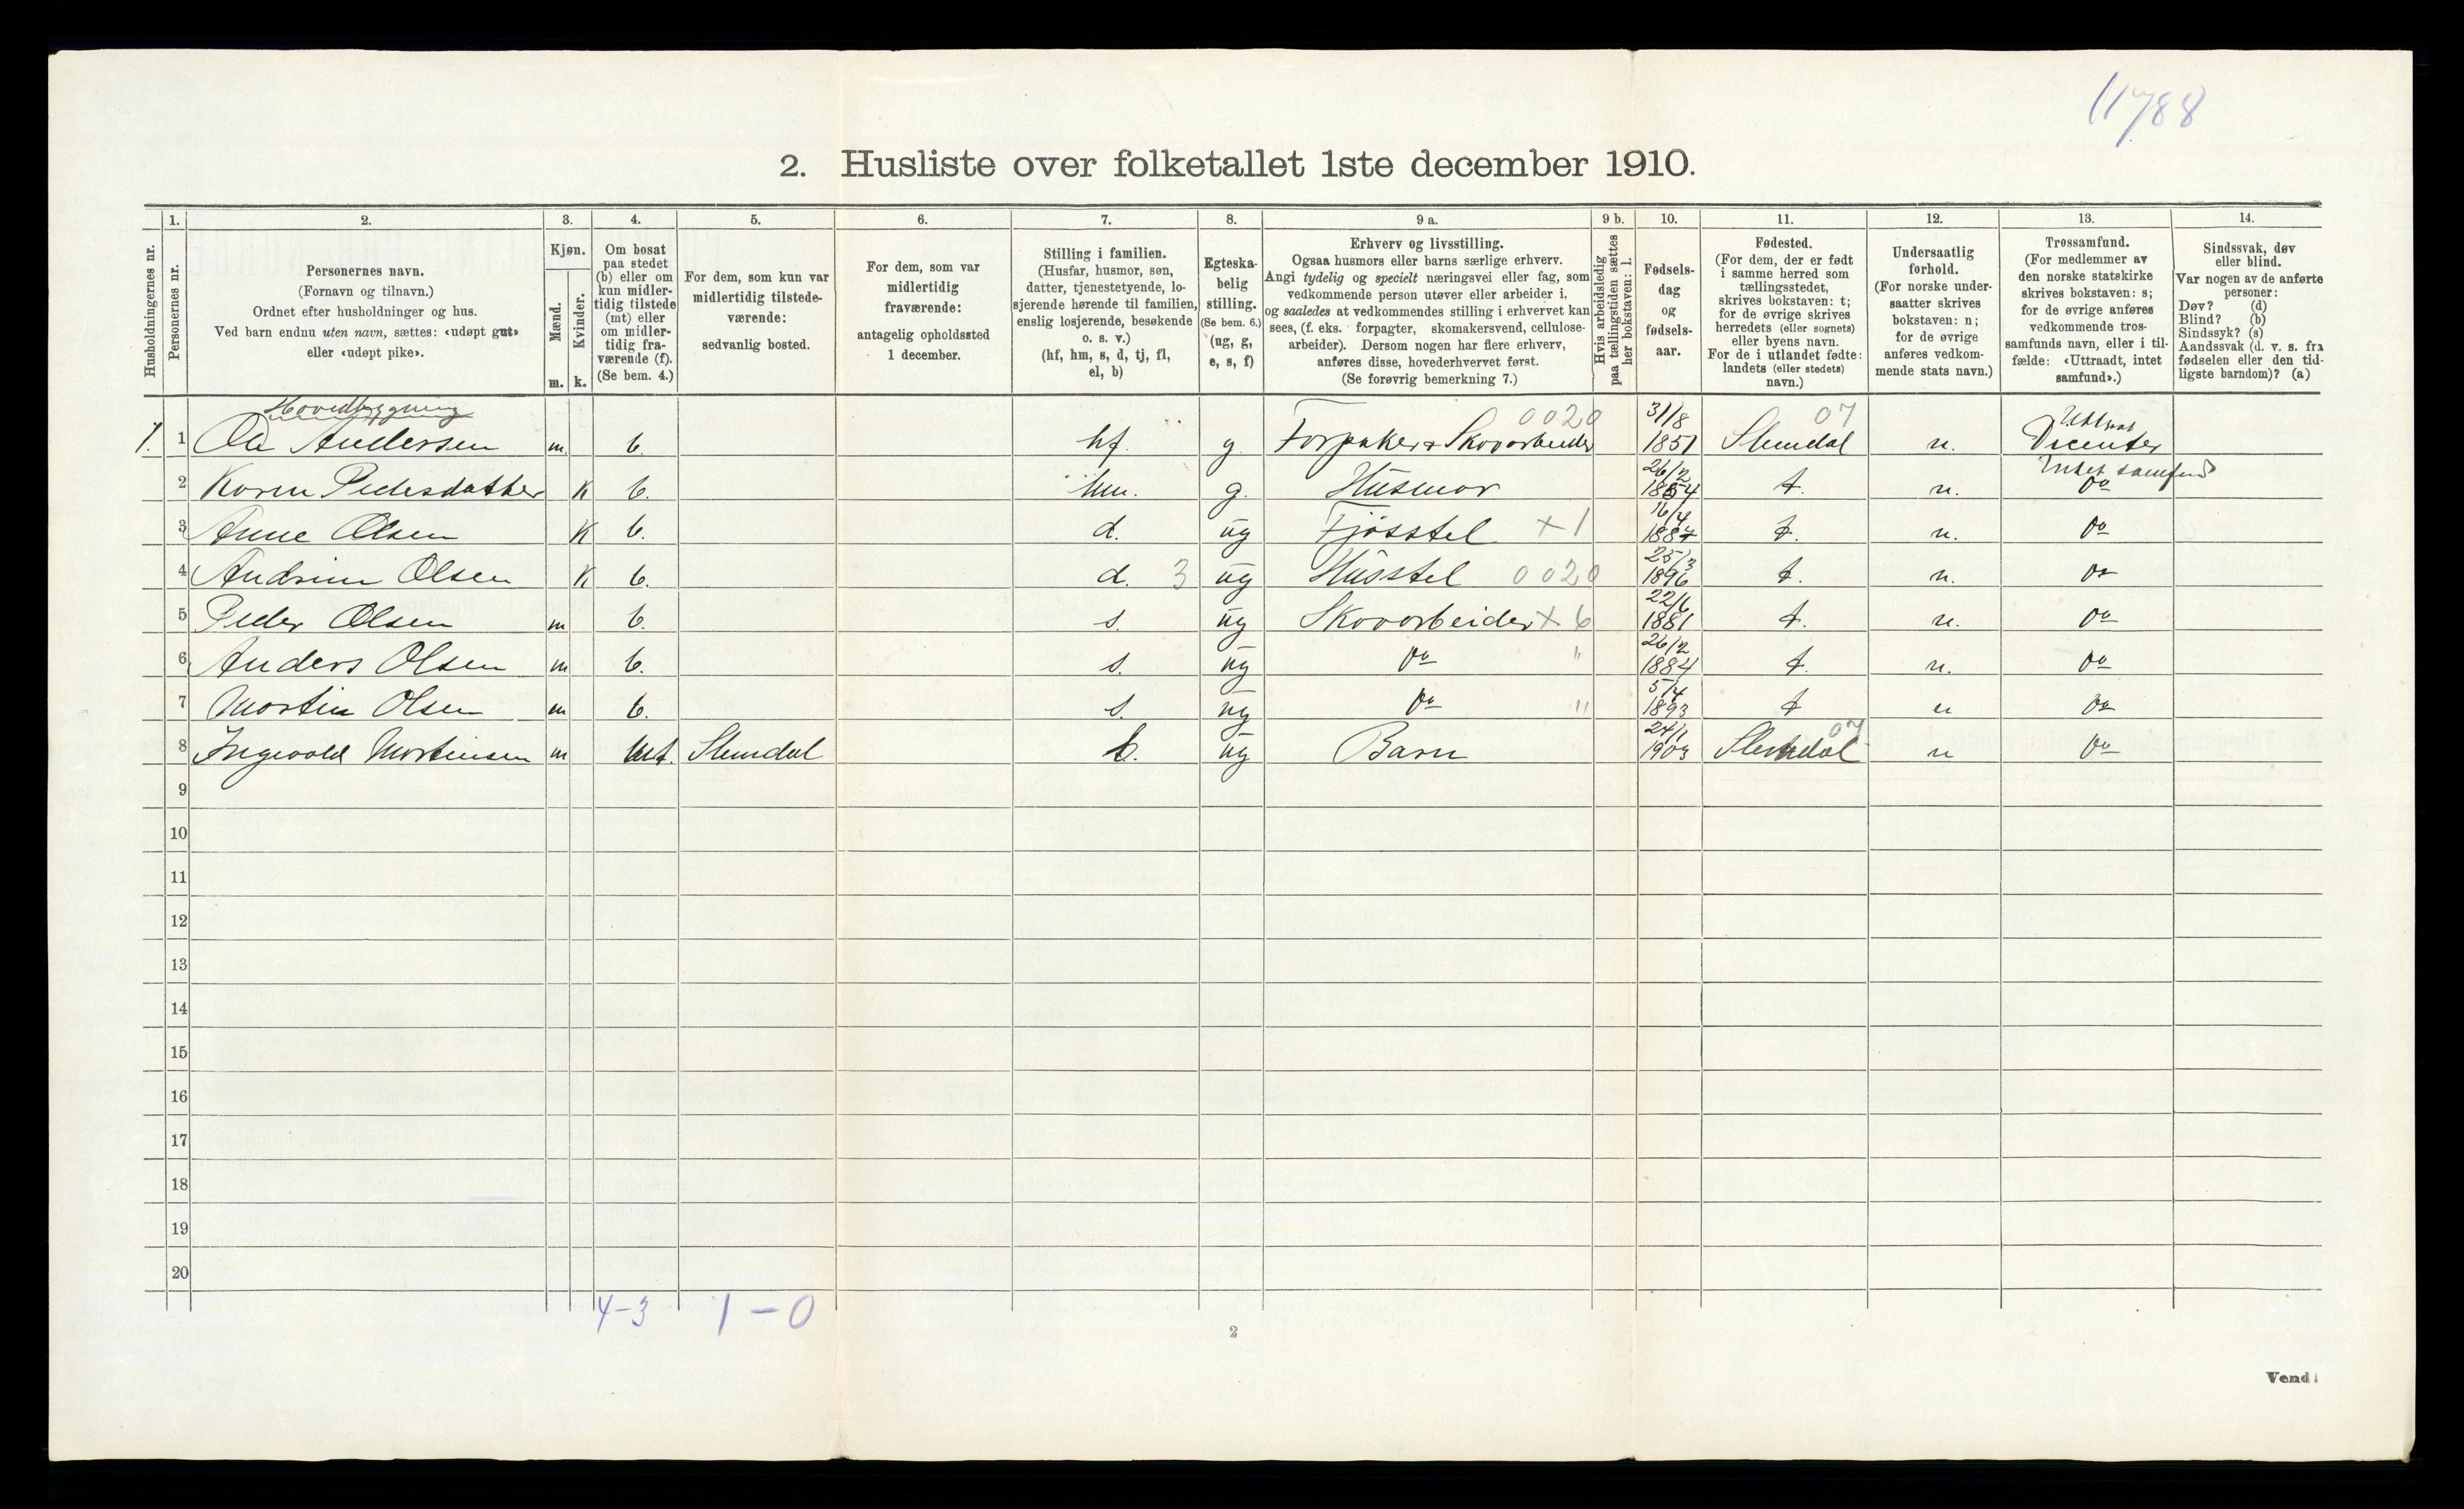 11788
2. Husliste over folketallet 1ste december 1910.
1. 2. 3. 4. 5. 6. 7. 8. 9 a. 9 b. 10. 11. 12. 13. 14.
Husholdningernes nr.
Personernes nr.
Personernes navn.
(Fornavn og tilnavn.)
Ordnet efter husholdninger og hus.
Ved barn endnu uten navn, sættes: «udøpt gut»
eller «udøpt pike».
Kjøn.
Mænd.
Kvinder.
m. k.
Om bosat
paa stedet
(b) eller om
kun midler-
tidig tilstede
(mt) eller
om midler-
tidig fra-
værende (f).
(Se bem. 4.)
For dem, som kun var
midlertidig tilstede-
værende:
sedvanlig bosted.
For dem, som var
midlertidig
fraværende:
antagelig opholdssted
1 december.
Stilling i familien.
(Husfar, husmor, søn,
datter, tjenestetyende, lo-
sjerende hørende til familien,
enslig losjerende, besøkende
o. s. v.)
(hf, hm, s, d, tj, fl,
el, b)
Egteska-
belig
stilling.
(Se bem. 6.)
(ug, g,
e, s, f)
Erhverv og livsstilling.
Ogsaa husmors eller barns særlige erhverv.
Angi tydelig og specielt næringsvei eller fag, som
vedkommende person utøver eller arbeider i,
og saaledes at vedkommendes stilling i erhvervet kan
sees, (f. eks. forpagter, skomakersvend, cellulose-
arbeider). Dersom nogen har flere erhverv,
anføres disse, hovederhvervet først.
(Se forøvrig bemerkning 7.)
Hvis arbeidsledig
paa tællingstiden sættes
her bokstaven: l.
Fødsels-
dag
og
fødsels-
aar.
Fødested.
(For dem, der er født
i samme herred som
tællingsstedet,
skrives bokstaven: t;
for de øvrige skrives
herredets (eller sognets)
eller byens navn.
For de i utlandet fødte:
landets (eller stedets)
navn.)
Undersaatlig
forhold.
(For norske under-
saatter skrives
bokstaven: n;
for de øvrige
anføres vedkom-
mende stats navn.)
Trossamfund.
(For medlemmer av
den norske statskirke
skrives bokstaven: s;
for de øvrige anføres
vedkommende tros-
samfunds navn, eller i til-
fælde: «Uttraadt, intet
samfund».)
Sindssvak, døv
eller blind.
Var nogen av de anførte
personer:
Døv? (d)
Blind? (b)
Sindssyk? (s)
Aandssvak (d. v. s. fra
fødselen eller den tid-
ligste barndom)? (a)
Hovedbygning
1. 1 Ole Andersen m b. hf. g 0020 31/8 1851 07 n. Dicenter
2 Karen Pedersdatter K b. hm. g. Husmor 26/2 1854 t. n. Intet samfund Do
3 Anne Olsen K b. d. ug Fjøsstel × 1 16/4 1887 t. n. Do
4 Andrine Olsen K b. d. 3 ug Husstel 0020 25/3 1896 t. n. Do
5 Peder Olsen m b. s. ug Skovarbeider × 6 22/6 1881 t. n. Do
6 Anders Olsen m b. s. ug Do " 26/2 1884 t. n. Do
7 Martin Olsen m b. s. ug Do " 5/4 1893 t n Do
8 Ingvald Mortensen m mt. b. ug Barn 24/1 1903 07 n Do
9
10
11
12
13
14
15
16
17
18
19
20
4-3 1-0
2
Vend!